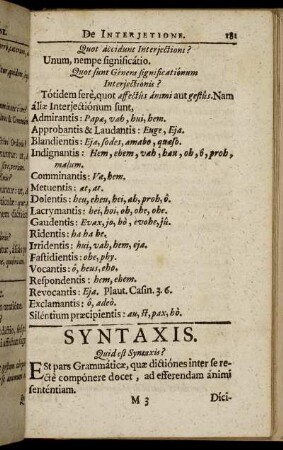 De Interjetione. 181
Quot accidunt Interjectioni?
Unum, nempe significátio.
Quot sunt Genera significatiónum
Interjectionis?
Tótidem ferè, quot affectûs ánimi aut gestûs. Nam
áliæ Interjectiónum sunt,
Admirantis: Papæ, vah, hui, hem.
Approbantis & Laudantis: Euge, Eja.
Blandientis: Eja, sodes, amabo, quæso.
Indignantis: Hem, ehem, vah, hau, oh, ô, proh,
malum.
Comminantis: Væ, hem.
Metuentis: at, at.
Dolentis: heu, eheu, hei, ah, proh, ô.
Lacrymantis: hei, hoi, oh, ohe, ohr.
Gaudentis: Evax, jo, hò, evohe, jü.
Ridentis: ha ha he.
Irridentis: hui, vah, hem, eja.
Fastidientis: ohe, phy.
Vocantis: ô, heus, eho.
Respondentis: hem, ehem.
Revocantis: Eja. Plaut. Casin. 3. 6.
Exclamantis: ô, adeò.
Siléntium præcipientis: au, st, pax, hò.
SYNTAXIS.
Quid est Syntaxis?
Est pars Grammáticæ, quæ dictiónes inter se re-
ctè compónere docet, ad efferendam ánimi
senténtiam.
M 3 Dici-